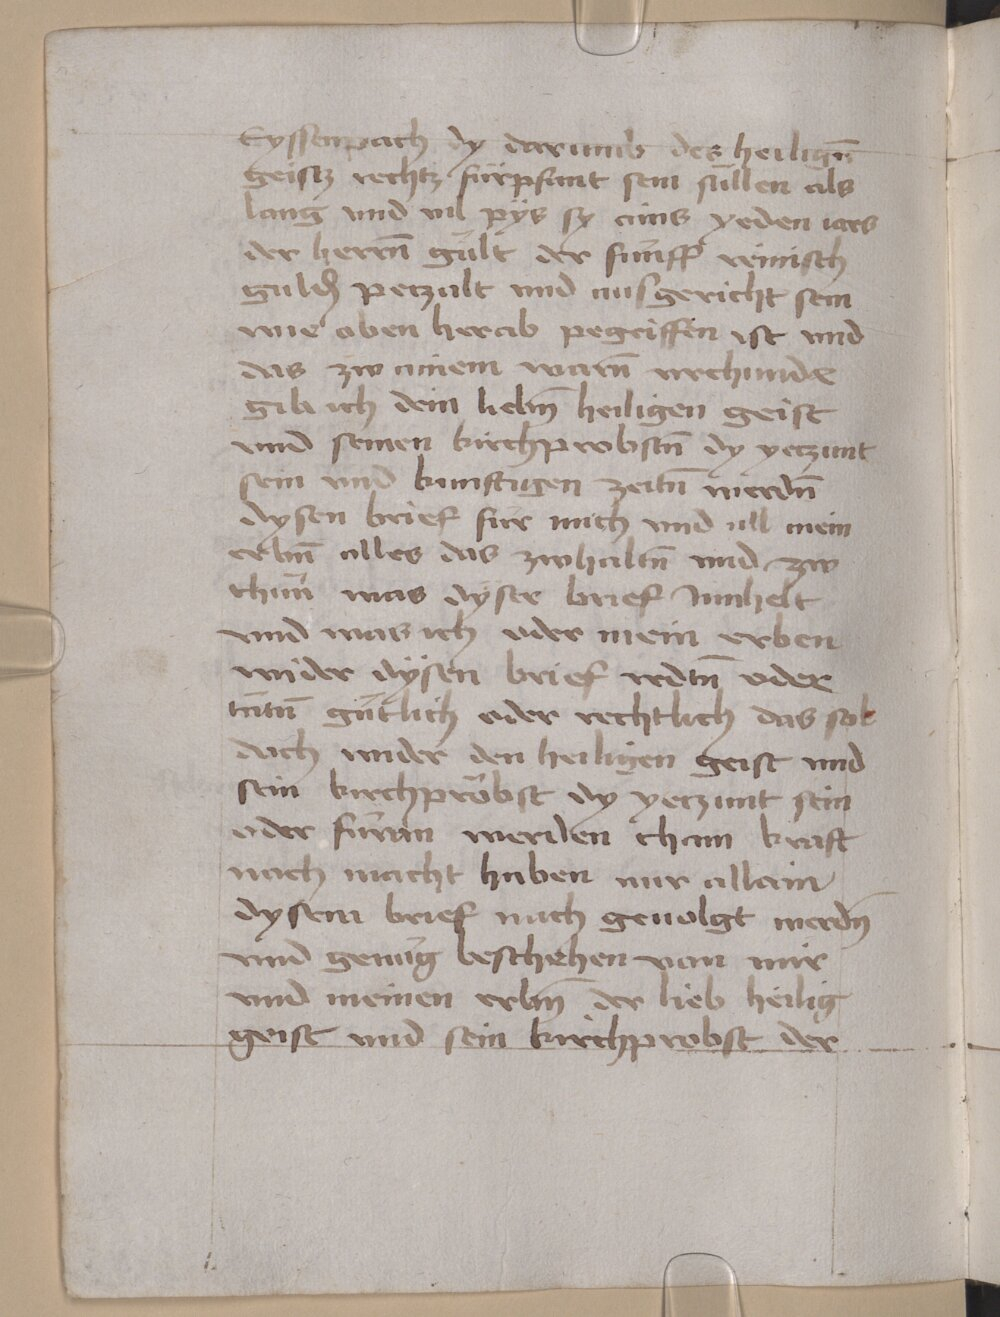 Eyssenpach dy darumb des heiligñ
geistz rechtz fürpfant sein süllen als
lang und vil pÿs sy ains yeden iars
der herrñ gült der fünff reinisch
guldñ petzalt und ausgericht sein
wie oben herab pegriffen ist und
das zw ainem warñ urchunde
gib ich dem liebñ heiligen geist
und seinen kirchprobstñ dy yetzunt
sein und kunftigen zeitñ werdñ
dysen brief für mich und all mein
erbñ alles das zwhaltñ und zw
thün was dÿser brief Innhelt
und was ich oder mein erben
wider dÿsen brief redtñ oder
tätñ gütlich oder rechtlich das sol
doch wider den heiligen geist und
sein kirchpröbst dy yetzunt sein
oder füran werden chain kraft
nach macht haben nur allain
dysem brief nach geuolgt werdñ
und genüg beschehen von mir
und meinen erbñ der lieb heilig
geist und sein kirchprobst der